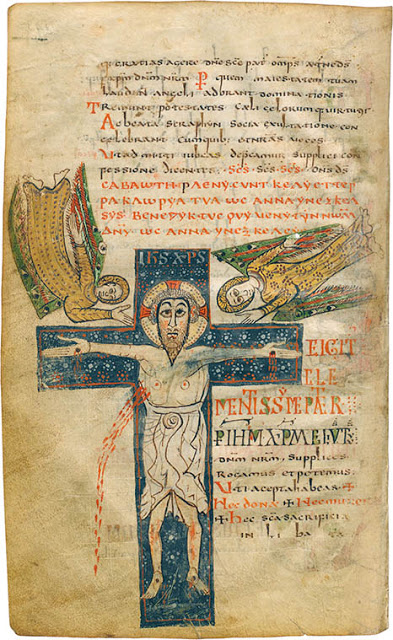 gratias agere dne sce pat omps aeterne ds
p xpm dnm nrm P quem maiestatem tuam
laudant angeli adorant dominationis
Tremunt potestates Caeli celorumque uirtutes
Ac beata seraphin socia exultatione con
celebrant Cumquib; et nras uoces
Ut admitti iubeas deprecamur supplici con
fessione dicentes Scs Scs Scs Dns ds
CABAWTH PLENY CUNT KELAY ET TER
PA KLWRYA TUA WCANNA YN EXKEL
SYS BENEDYKTUC QUY UENYT YN NWM
DNY WCANNA YN EXKELC
IHS XPS
TE IGIT
CLE
MENTISSIME PATER
P IHM XPM
dnm nrm, supplices
Rogamus et petemus
Uti acepta habeas +
Hec dona + Hec munera
+ Hec sca sacrificia
in li ba ta